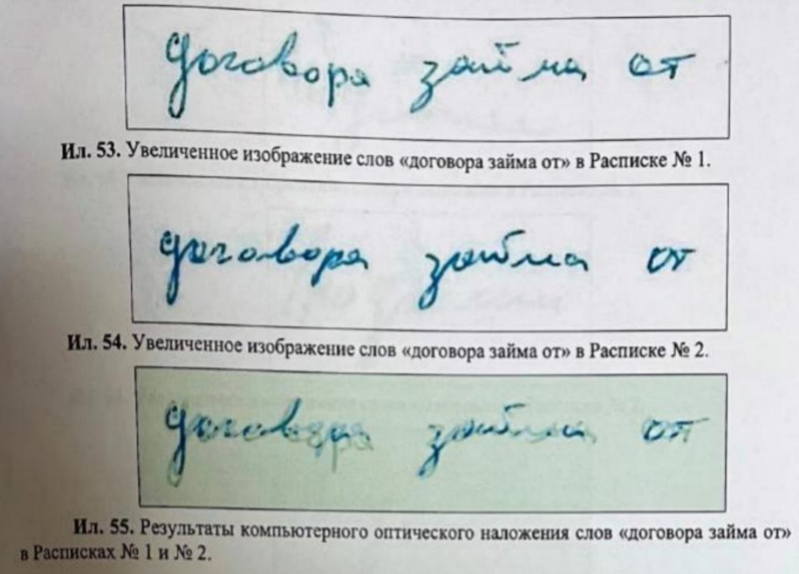 договора займа от
Ил. 53. Увеличенное изображение слов «договора займа от» в Расписке № 1.
договора займа от
Ил. 54. Увеличенное изображение слов «договора займа от» в Расписке № 2.
договора займа от
Ил. 55. Результаты компьютерного оптического наложения слов «договора займа от»
в Расписках № 1 и № 2.